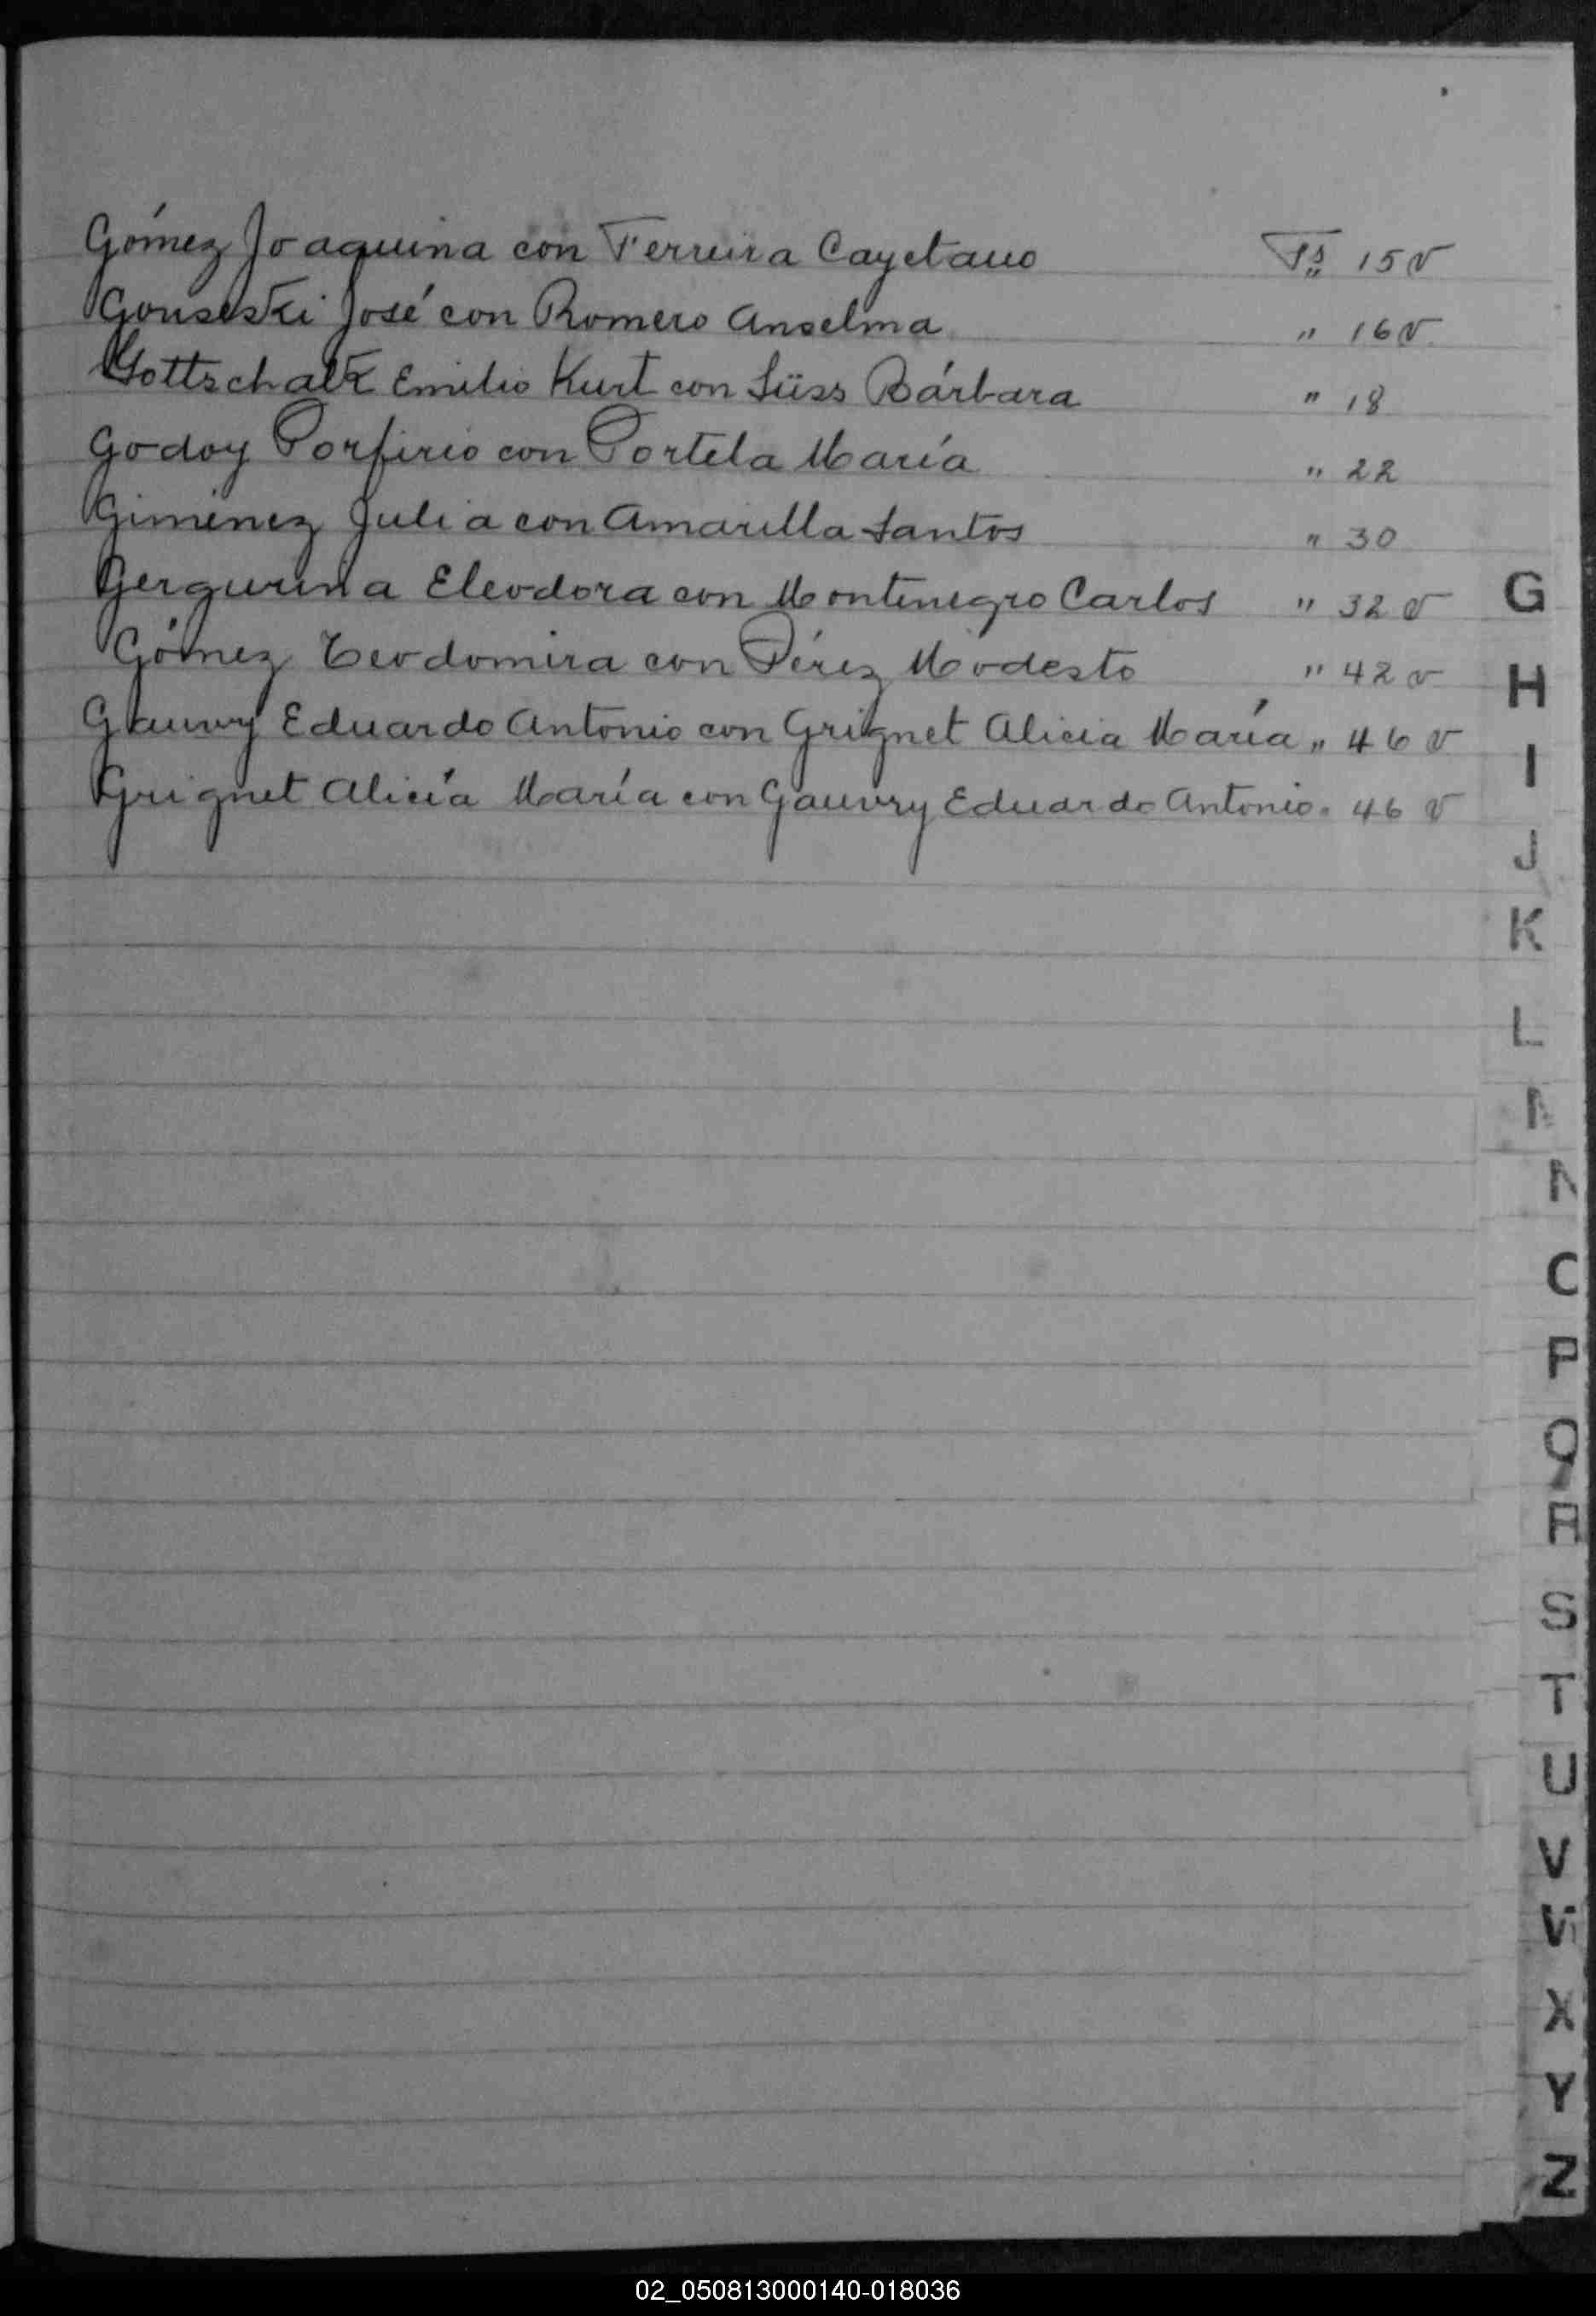 Gómez Joaquina con Ferreira Cayetano Fs 15 v
Gouseski José con Romero Anselma " 16 v
Gottschalk Emilio Kurt con Süss Bárbara " 18
Godoy Porfirio con Portela María " 22
Giménez Julia con Amarilla Santos " 30
Eleodora con Montenegro Carlos " 32 v
Gómez Teodomira con Pérez Modesto " 42 v
Gauvry Eduardo Antonio con Grignet Alicia María " 46 v
Grignet Alicia María con Gauvry Eduardo Antonio " 46 v
G
H
I
J
K
L
N
C
P
Q
R
S
T
U
V
X
Y
Z
02_050813000140-018036